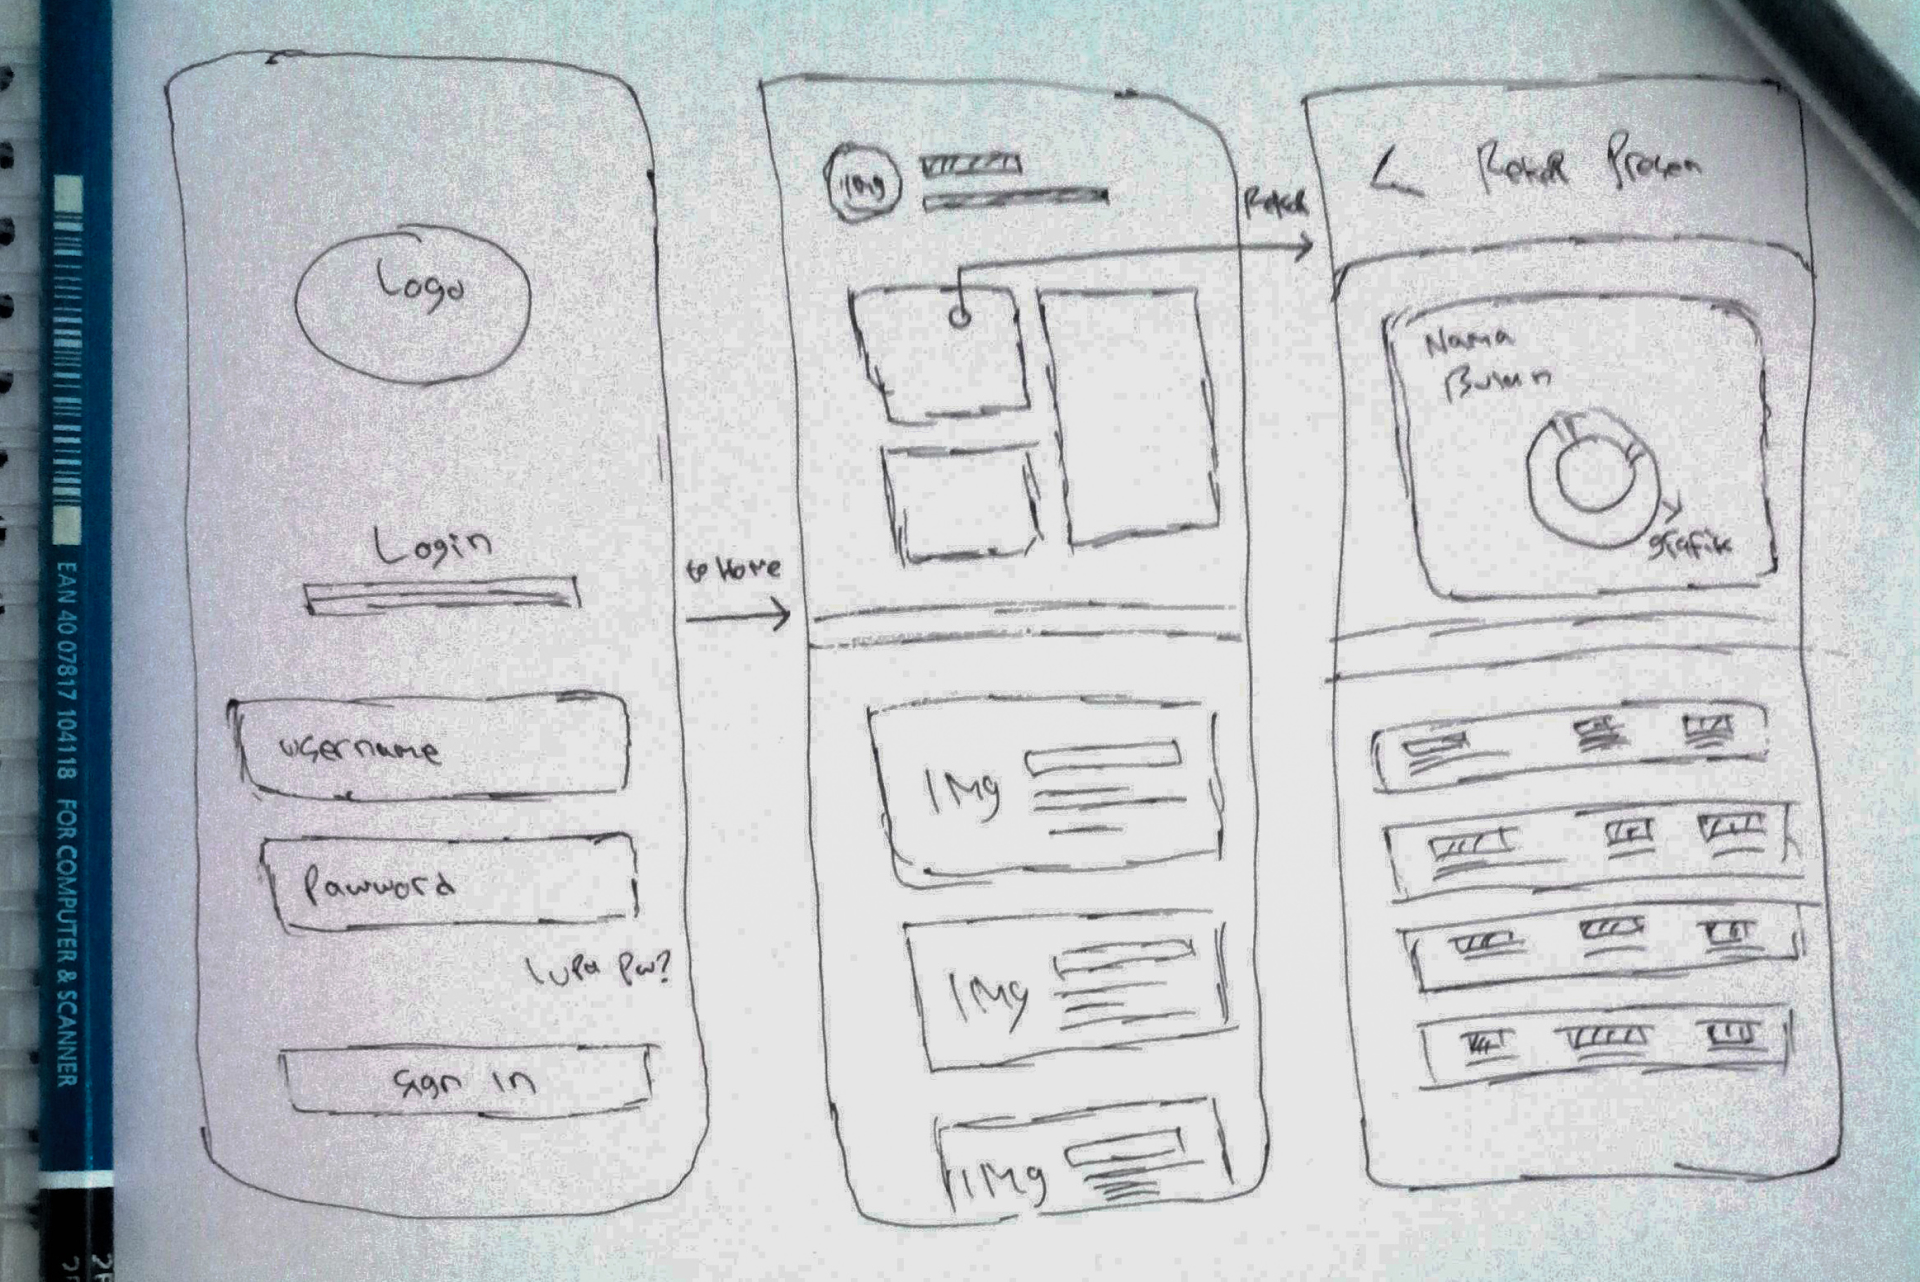 EAN 40 07817 104118 FOR COMPUTER & SCANNER
Logo
Login
username
Password
lupa pw?
Sign in
to Home
IMg
IMg
IMg
IMg
Rekap
Rekap Presen
Nama
Bulan
grafik